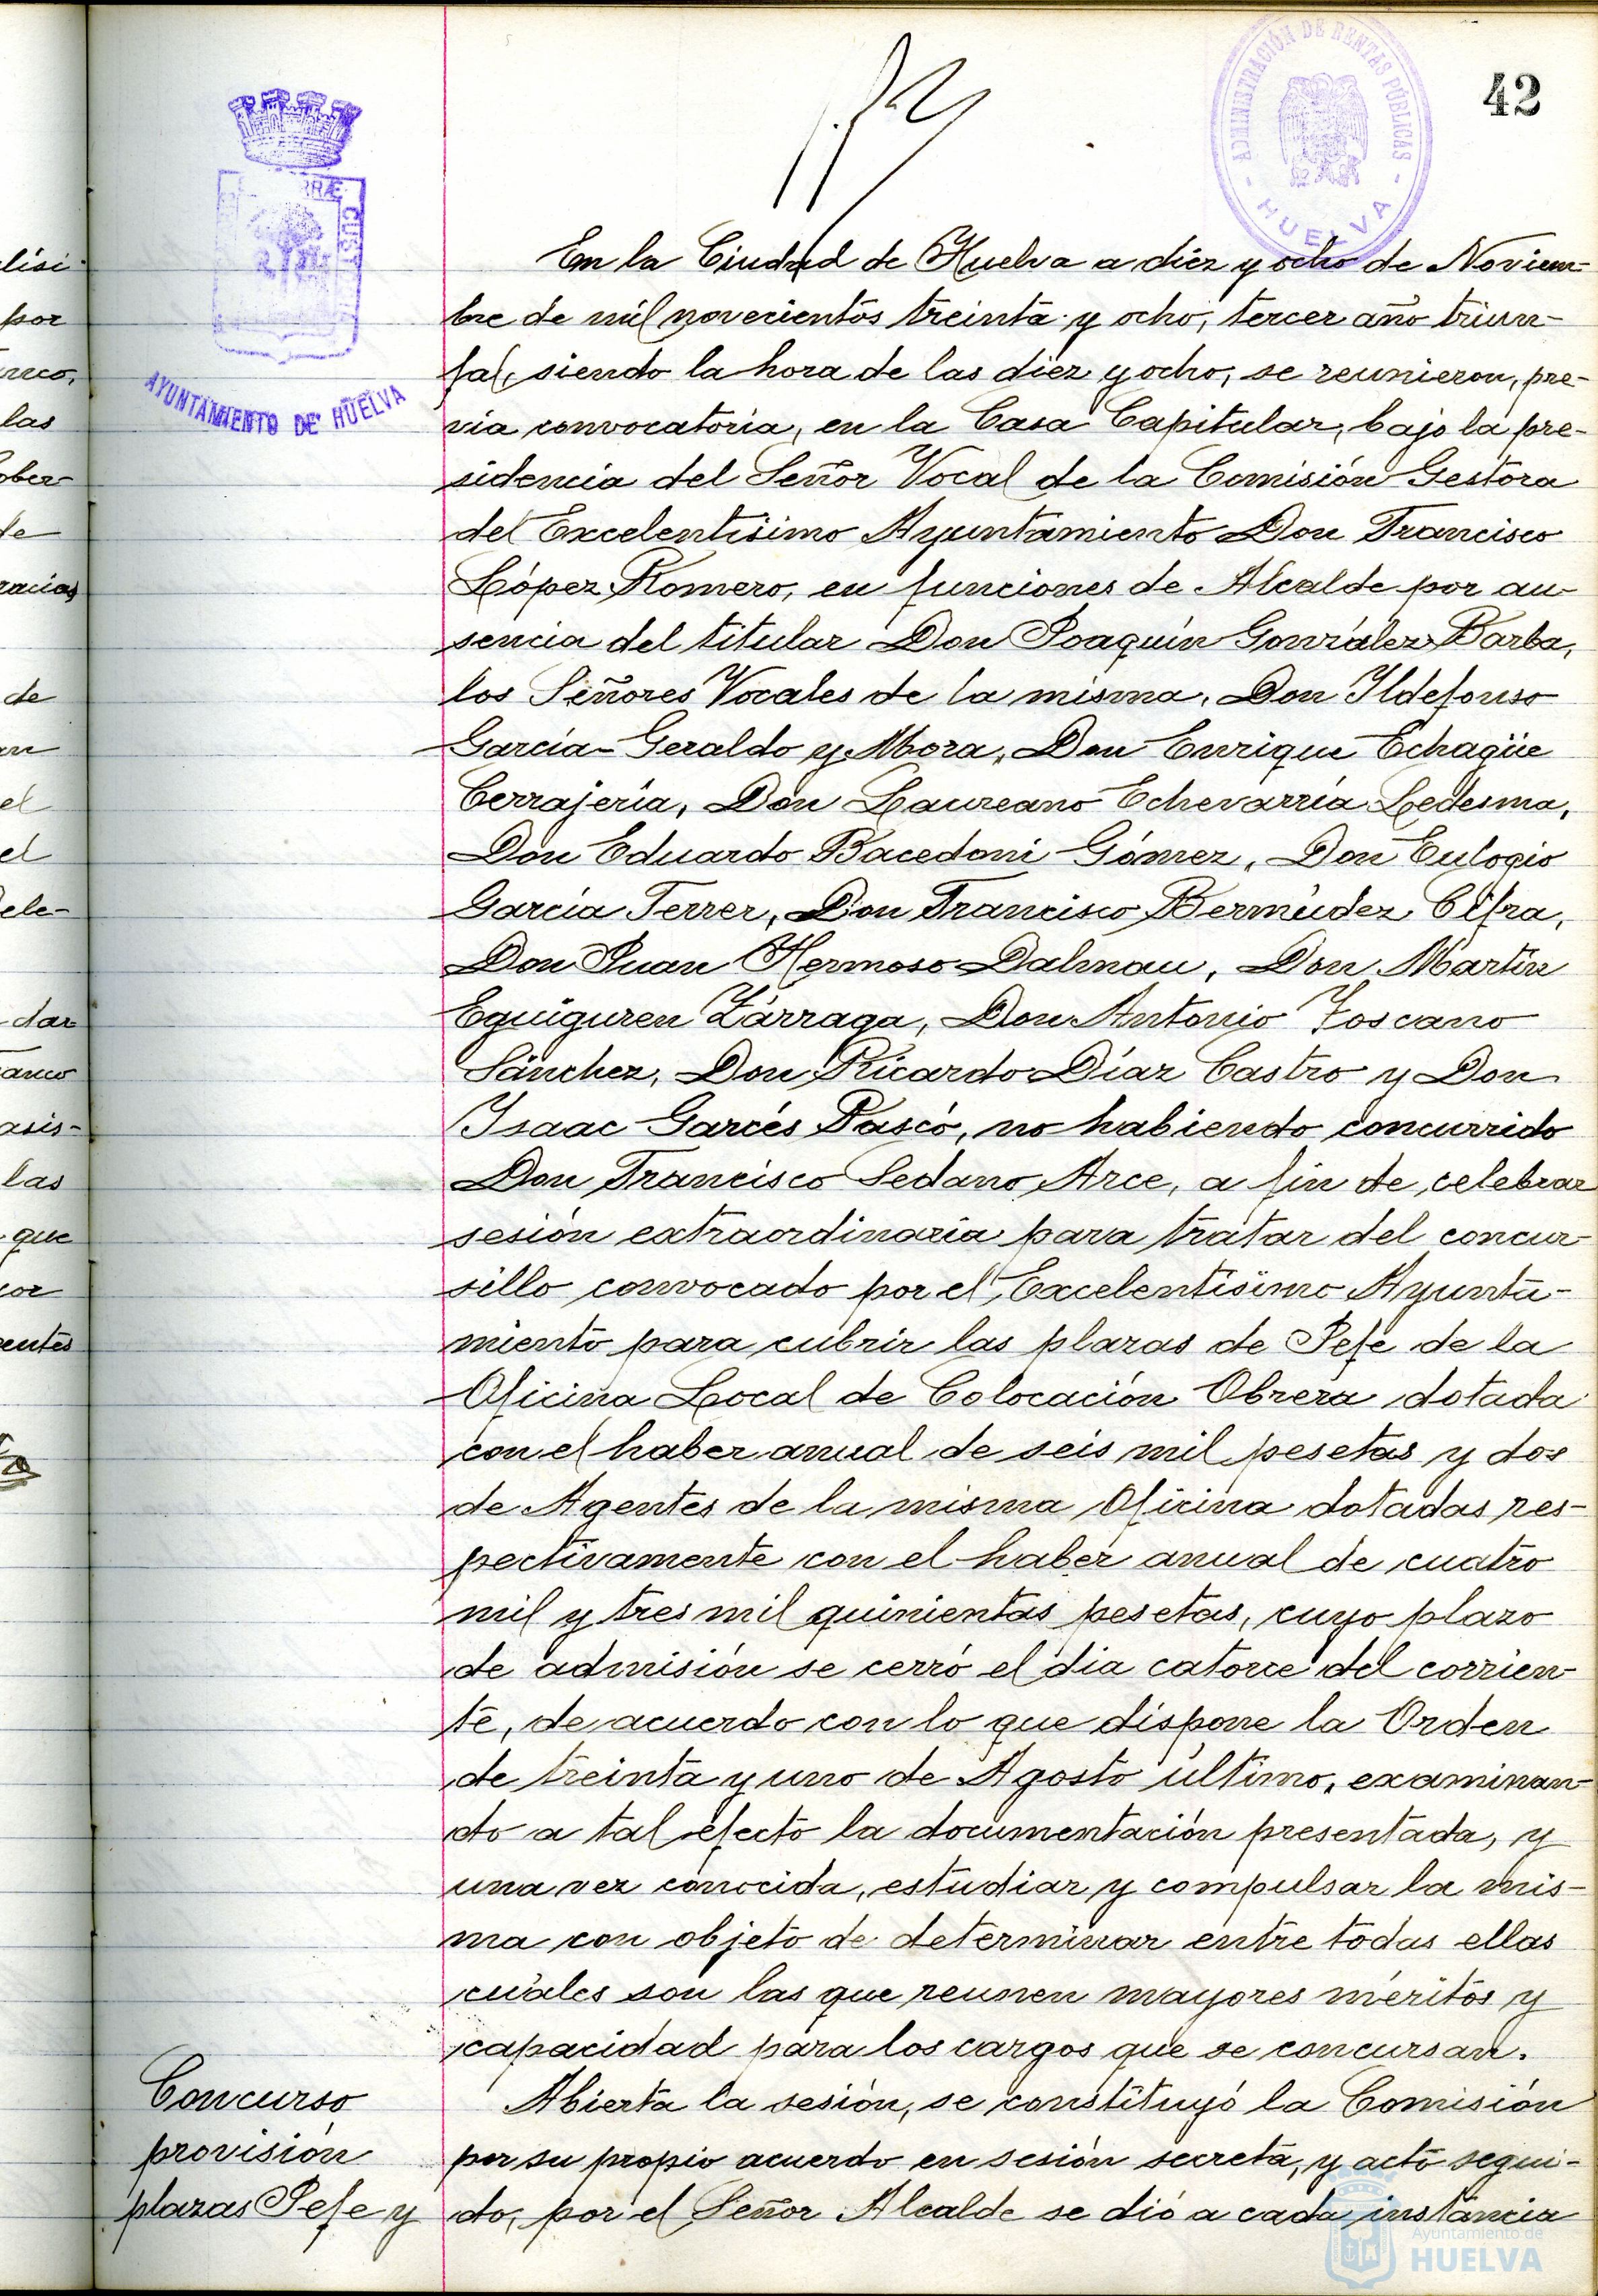 42
ADMINISTRACIÓN DE RENTAS PÚBLICAS
HUELVA
RRÆ CUST
AYUNTAMIENTO DE HUELVA
En la Ciudad de Huelva a diez y ocho de Noviem-
bre de mil novecientos treinta y ocho, tercer año triun-
fal, siendo la hora de las diez y ocho, se reunieron, pre-
via convocatoria, en la Casa Capitular, bajo la pre-
sidencia del Señor Vocal de la Comisión Gestora
del Excelentisimo Ayuntamiento Don Francisco
López Romero, en funciones de Alcalde por au-
sencia del titular Don Joaquin González Barba,
los Señores Vocales de la misma, Don Yldefonso
García-Geraldo y Mora, Don Enrique Echagüe
Cerrajería, Don Laureano Echevarría Ledesma,
Don Eduardo Bacedoni Gómez, Don Eulogio
García Ferrer, Don Francisco Bermúdez Cifra,
Don Juan Hermoso Dalmau, Don Martín
Eguiguren Zárraga, Don Antonio Toscano
Sánchez, Don Ricardo Díaz Castro y Don
Ysaac Garcés Pascó, no habiendo concurrido
Don Francisco Sedano Arce, a fin de celebrar
sesión extraordinaria para tratar del concur-
sillo convocado por el Excelentísimo Ayunta-
miento para cubrir las plazas de Jefe de la
Oficina Local de Colocación Obrera dotada
con el haber anual de seis mil pesetas y dos
de Agentes de la misma Oficina dotadas res-
pectivamente con el haber anual de cuatro
mil y tres mil quinientas pesetas, cuyo plazo
de admisión se cerró el dia catorce del corrien-
te, de acuerdo con lo que dispone la Orden
de treinta y uno de Agosto último, examinan-
do a tal efecto la documentación presentada, y
una vez conocida, estudiar y compulsar la mis-
ma con objeto de determinar entre todas ellas
cuáles son las que reunen mayores méritos y
capacidad para los cargos que se concursan.
Abierta la sesión, se constituyó la Comisión
por su propio acuerdo en sesión secreta, y acto segui-
do, por el Señor Alcalde se dió a cada instancia
Concurso
provisión
plazas Jefe y
lisi-
por
las
ober-
de
racias
de
el
el
ele-
dar
asis-
las
que
entes
Ayuntamiento de
HUELVA